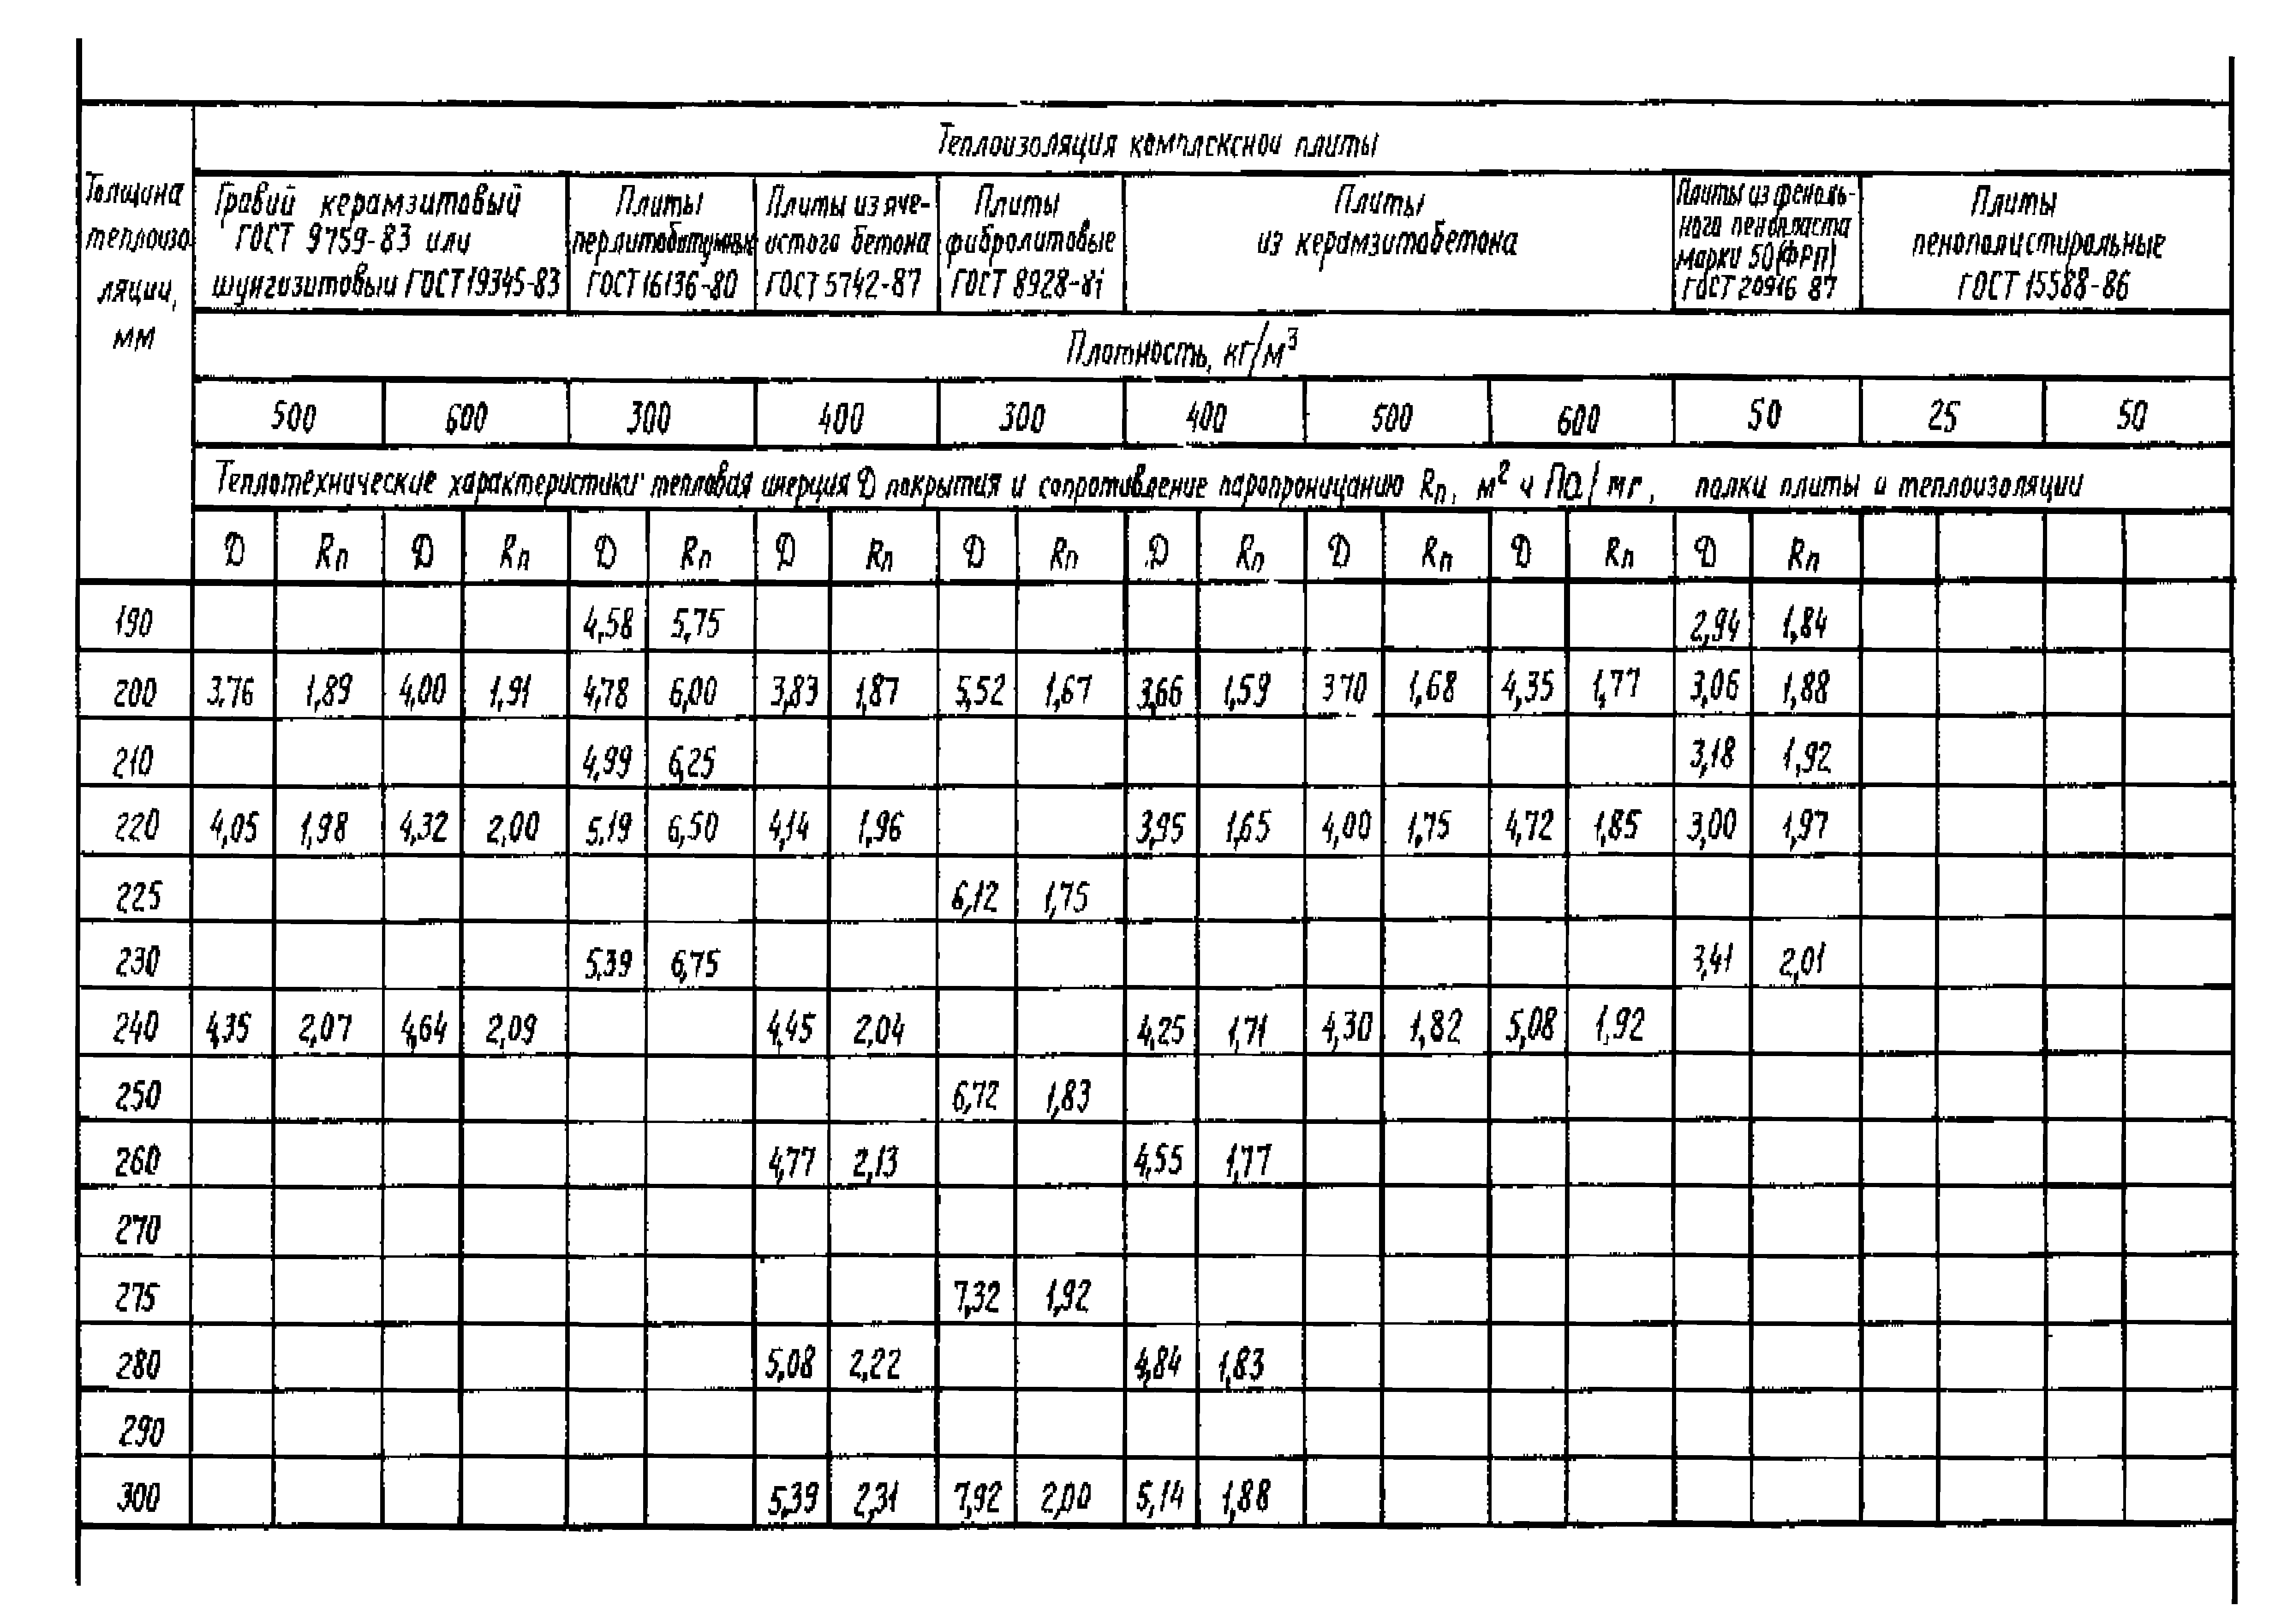 Теплоизоляция комплексной плиты
Толщина теплоизоляции, мм
Гравий керамзитовый
ГОСТ 9759-83 или
шунгизитовый ГОСТ 19345-83
Плиты
перлитобитумные
ГОСТ 16136-80
Плиты из яче-
истого бетона
ГОСТ 5742-87
Плиты
фибролитовые
ГОСТ 8928-81
Плиты
из керамзитобетона
Плиты из феноль-
ного пенопласта
марки 50 (ФРП)
ГОСТ 20916 87
Плиты
пенополистирольные
ГОСТ 15588-86
Плотность, кг/м³
500 600 300 400 300 400 500 600 50 25 50
Теплотехнические характеристики: тепловая инерция D покрытия и сопротивление паропроницанию Rп, м² ч Па/мг, полки плиты и теплоизоляции
D Rп D Rп D Rп D Rп D Rп D Rп D Rп D Rп D Rп
190 4,58 5,75 2,94 1,84
200 3,76 1,89 4,00 1,91 4,78 6,00 3,83 1,87 5,52 1,67 3,66 1,59 3 70 1,68 4,35 1,77 3,06 1,88
210 4,99 6,25 3,18 1,92
220 4,05 1,98 4,32 2,00 5,19 6,50 4,14 1,96 3,95 1,65 4,00 1,75 4,72 1,85 3,00 1,97
225 6,12 1,75
230 5,39 6,75 3,41 2,01
240 4,35 2,07 4,64 2,09 4,45 2,04 4,25 1,71 4,30 1,82 5,08 1,92
250 6,72 1,83
260 4,77 2,13 4,55 1,77
270
275 7,32 1,92
280 5,08 2,22 4,84 1,83
290
300 5,39 2,31 7,92 2,00 5,14 1,88